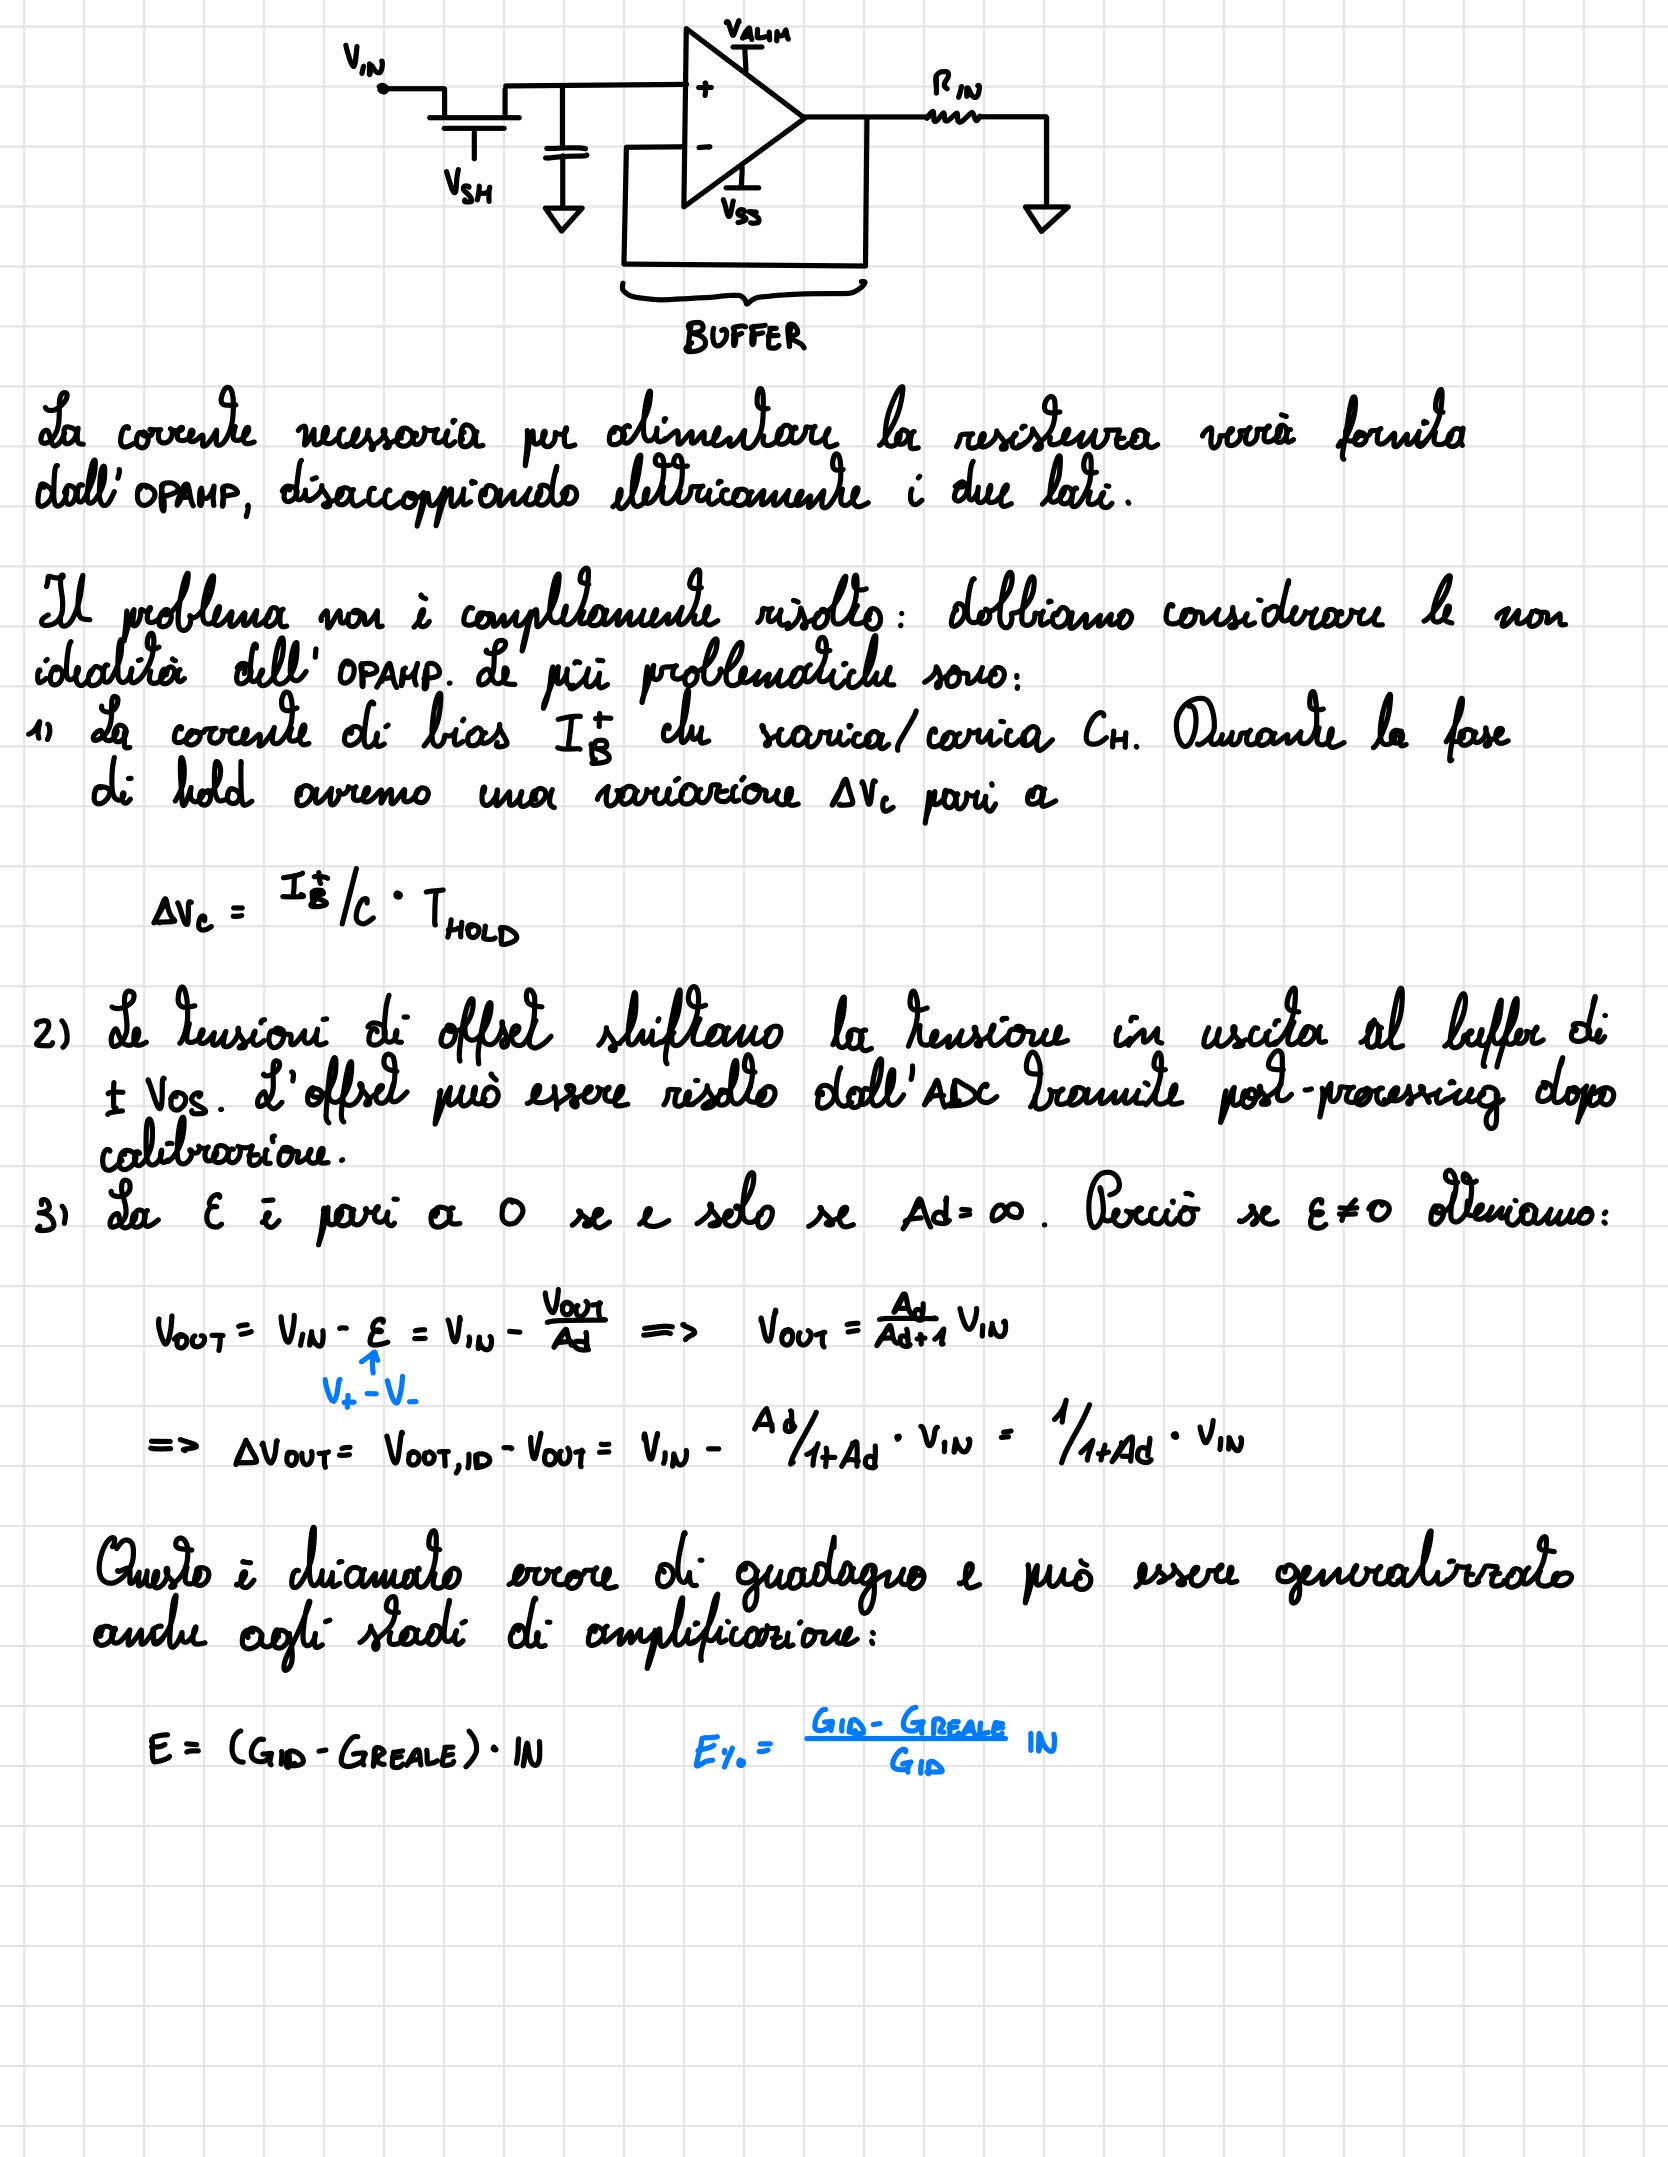 V_IN
V_SH
V_ALIM
+
-
V_SS
R_IN
BUFFER
La corrente necessaria per alimentare la resistenza verrà fornita
dall'OPAMP, disaccoppiando elettricamente i due lati.
Il problema non è completamente risolto: dobbiamo considerare le non
idealità dell'OPAMP. Le più problematiche sono:
1) La corrente di bias I_B^+ che scarica/carica C_H. Durante la fase
di hold avremo una variazione ΔV_C pari a
ΔV_C = I_B^+/C · T_HOLD
2) Le tensioni di offset shiftano la tensione in uscita al buffer di
± VOS. L'offset può essere risolto dall'ADC tramite post-processing dopo
calibrazione.
3) La ε è pari a 0 se e solo se Ad = ∞. Perciò se ε ≠ 0 otteniamo:
V_OUT = V_IN - ε = V_IN - V_OUT/Ad => V_OUT = Ad/(Ad+1) V_IN
V_+ - V_-
=> ΔV_OUT = V_OUT,ID - V_OUT = V_IN - Ad/1+Ad · V_IN = 1/1+Ad · V_IN
Questo è chiamato errore di guadagno e può essere generalizzato
anche agli stadi di amplificazione:
E = (G_ID - G_REALE) · IN E% = (G_ID - G_REALE)/G_ID IN